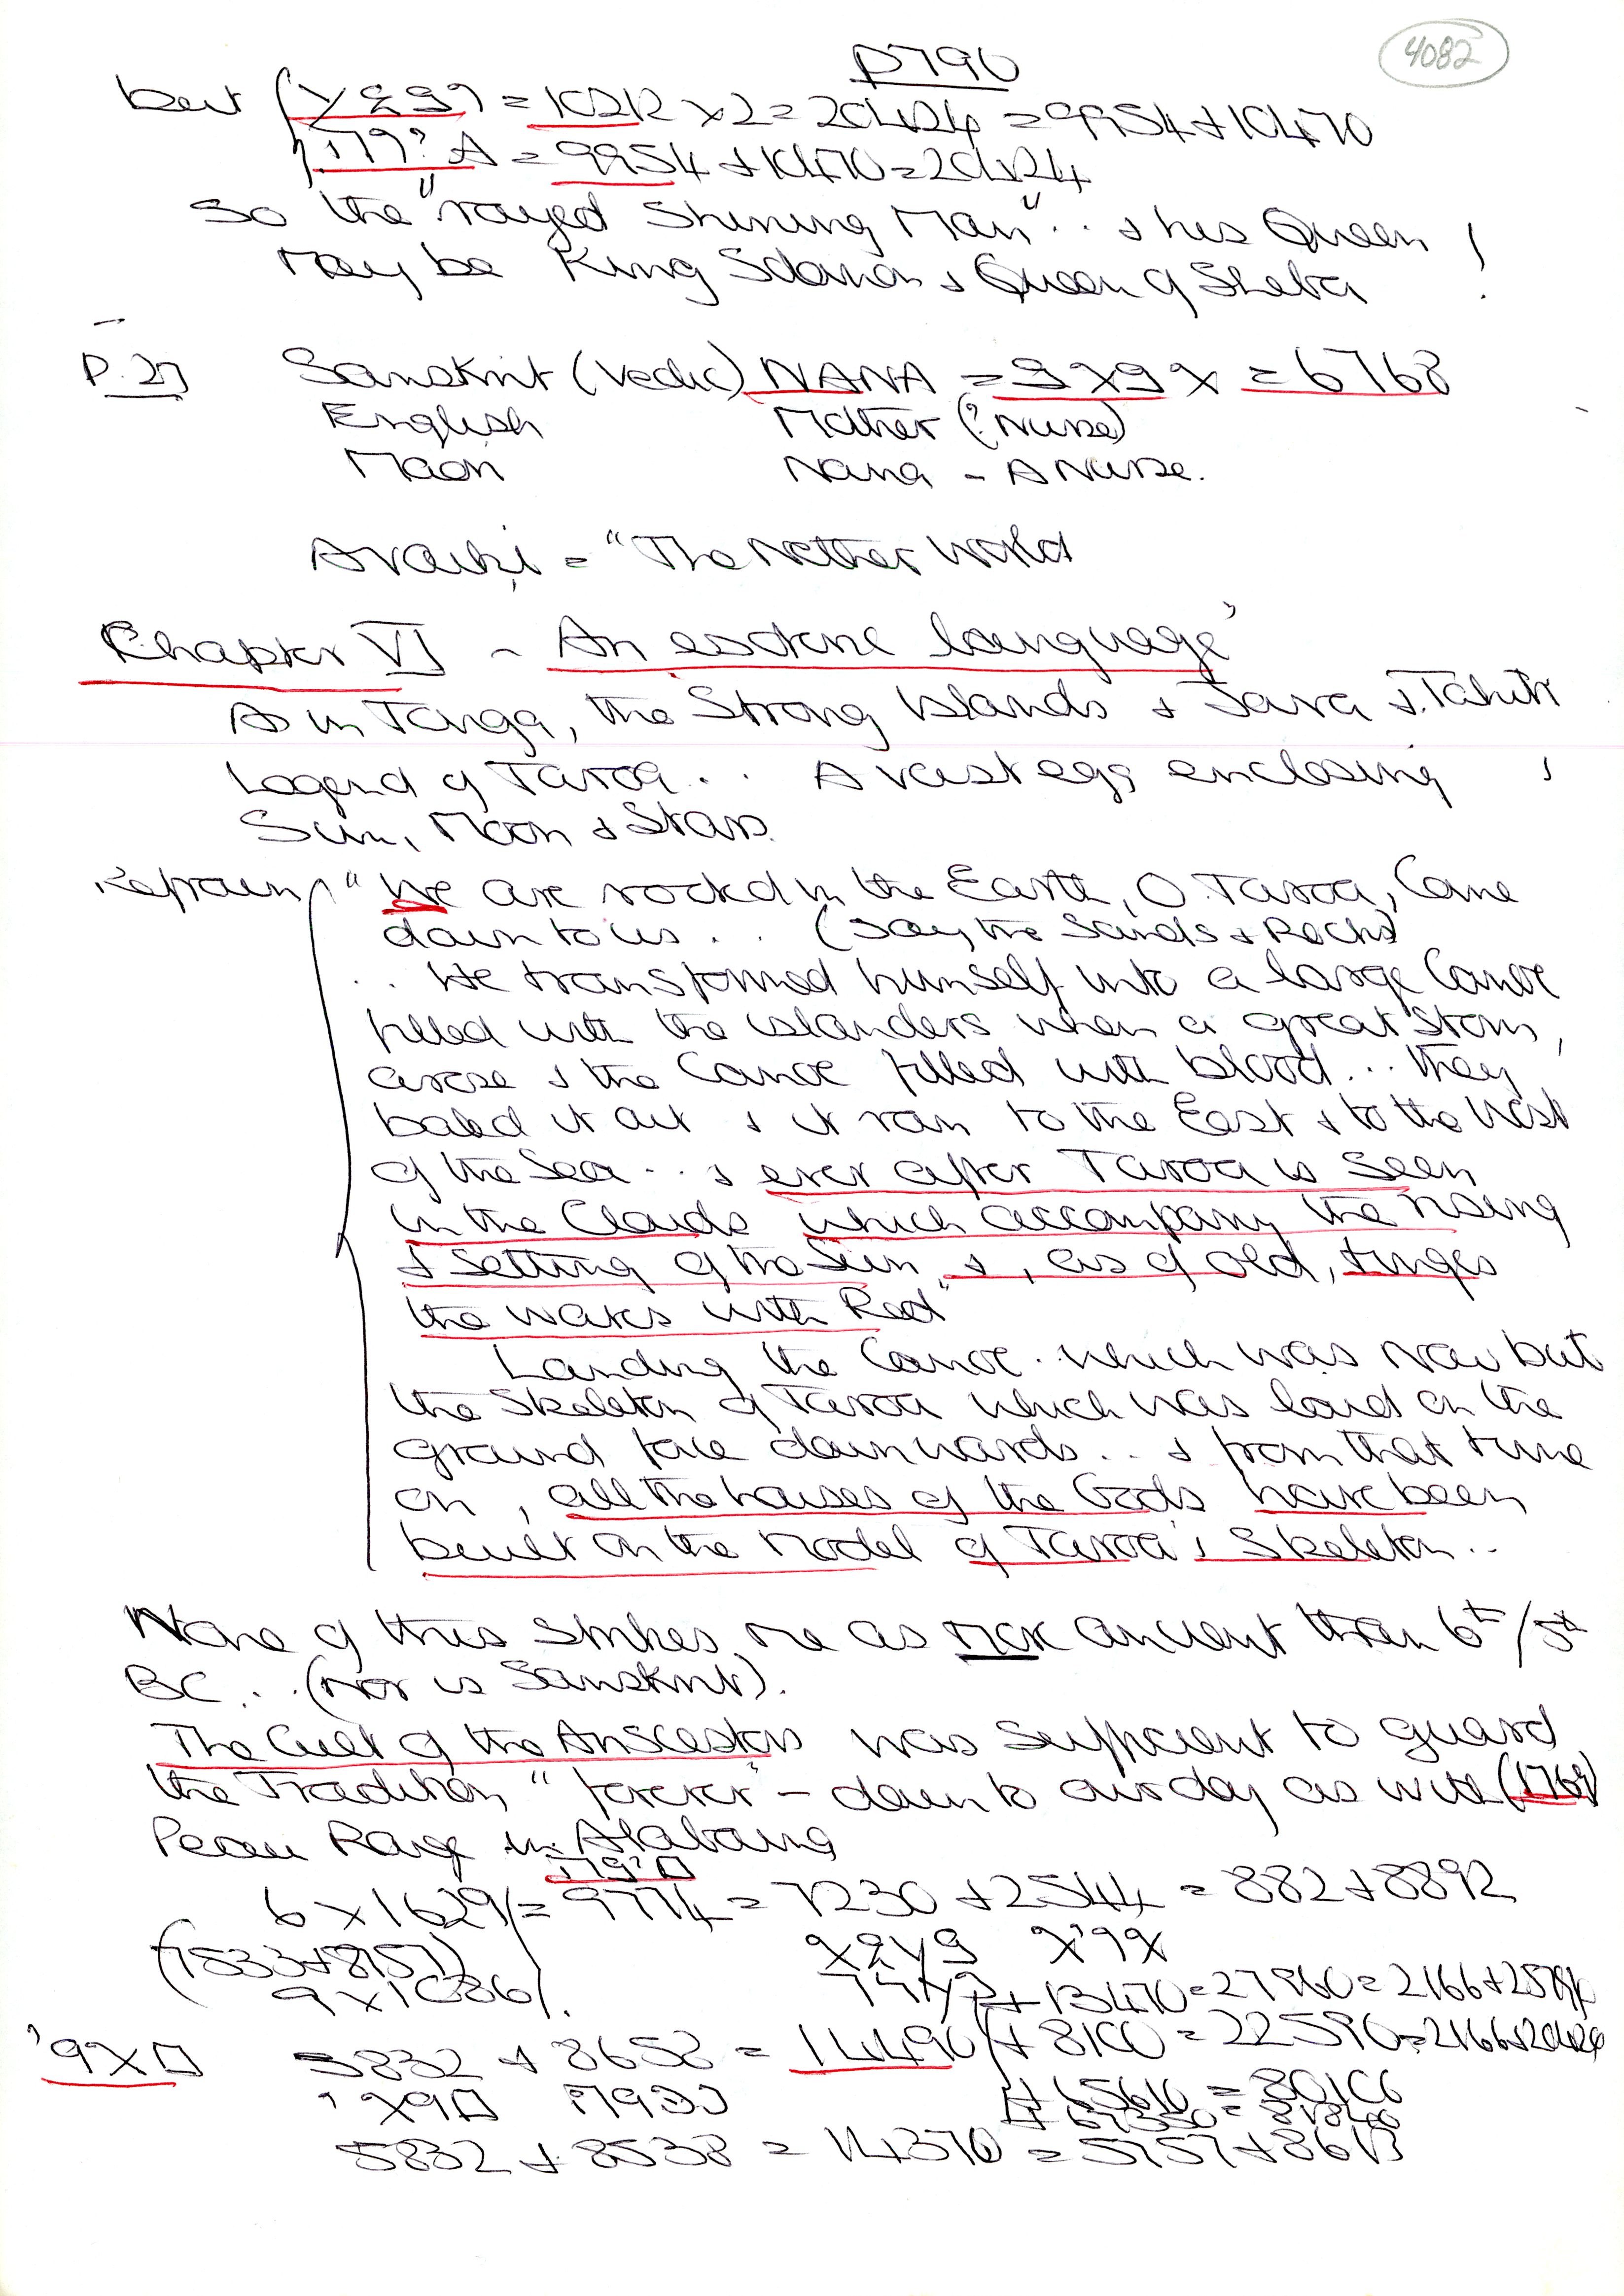 4082
P790
but = 10212 x 2 = 20424 = 9954 + 10470
A = 9954 + 10470 = 20424
So the "rayed Shining Man" .. & his Queen !
May be King Solomon & Queen of Sheba
P. 27 Sanskrit (Vedic) NANA = = 6768
English Mother (? Nurse)
Maori Nana - A Nurse.
Avaiki = "The Nether World
Chapter VI - An esoteric language'
As in Tonga, the Strong Islands & Java & Tahiti
Legend of Taroa .. A vast egg enclosing
Sun, Moon & Stars.
Refrain "We are rocked in the Earth, O. Taroa, Come
down to us .. (say the Sands & Rocks)
.. He transformed himself into a large Canoe
filled with the islanders when a great storm,
arose & the Canoe filled with blood... they
baled it out & it ran to the East & to the West
of the Sea .. & ever after Taroa is seen
in the Clouds which accompany the rising
& setting of the Sun, &, as of old, tinges
the waves with Red"
Landing the Canoe .. which was now but
the Skeleton of Taroa which was laid on the
ground face downwards .. & from that time
on, all the houses of the Gods have been
built on the model of Taroa's Skeleton ..
None of this strikes me as more ancient than 6th/5th
BC .. (nor is Sanskrit).
The Cult of the Anscestors was sufficient to guard
the Tradition "forever" - down to our day as with (1769)
6 x 1629 = 9774 = 7230 + 2544 = 882 + 8892
9 x 1086
+ 13470 = 27960 = 2166 +
5832 + 8658 = 14490 + 8100 = 22590 = 2166 + 20424
+ 65610 = 80100
5832 + 8538 = 14370 = 5757 + 8613